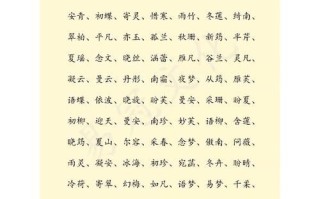 安青、初蝶、寄灵、惜寒、雨竹、冬莲、绮南、
翠柏、平凡、亦玉、孤兰、秋珊、新筠、半芹、
夏瑶、念文、晓丝、涵蕾、雁凡、谷兰、灵凡、
凝云、曼云、丹彤、南霜、夜梦、从筠、雁芙、
语蝶、依波、晓旋、盼芙、曼安、采珊、盼夏、
初柳、迎天、曼安、南珍、妙芙、语柳、含莲、
晓筠、夏山、尔容、采春、念梦、傲南、问薇、
雨灵、凝安、冰海、初珍、宛菡、冬卉、盼晴、
冷荷、寄翠、幻梅、如凡、语梦、易梦、千柔、